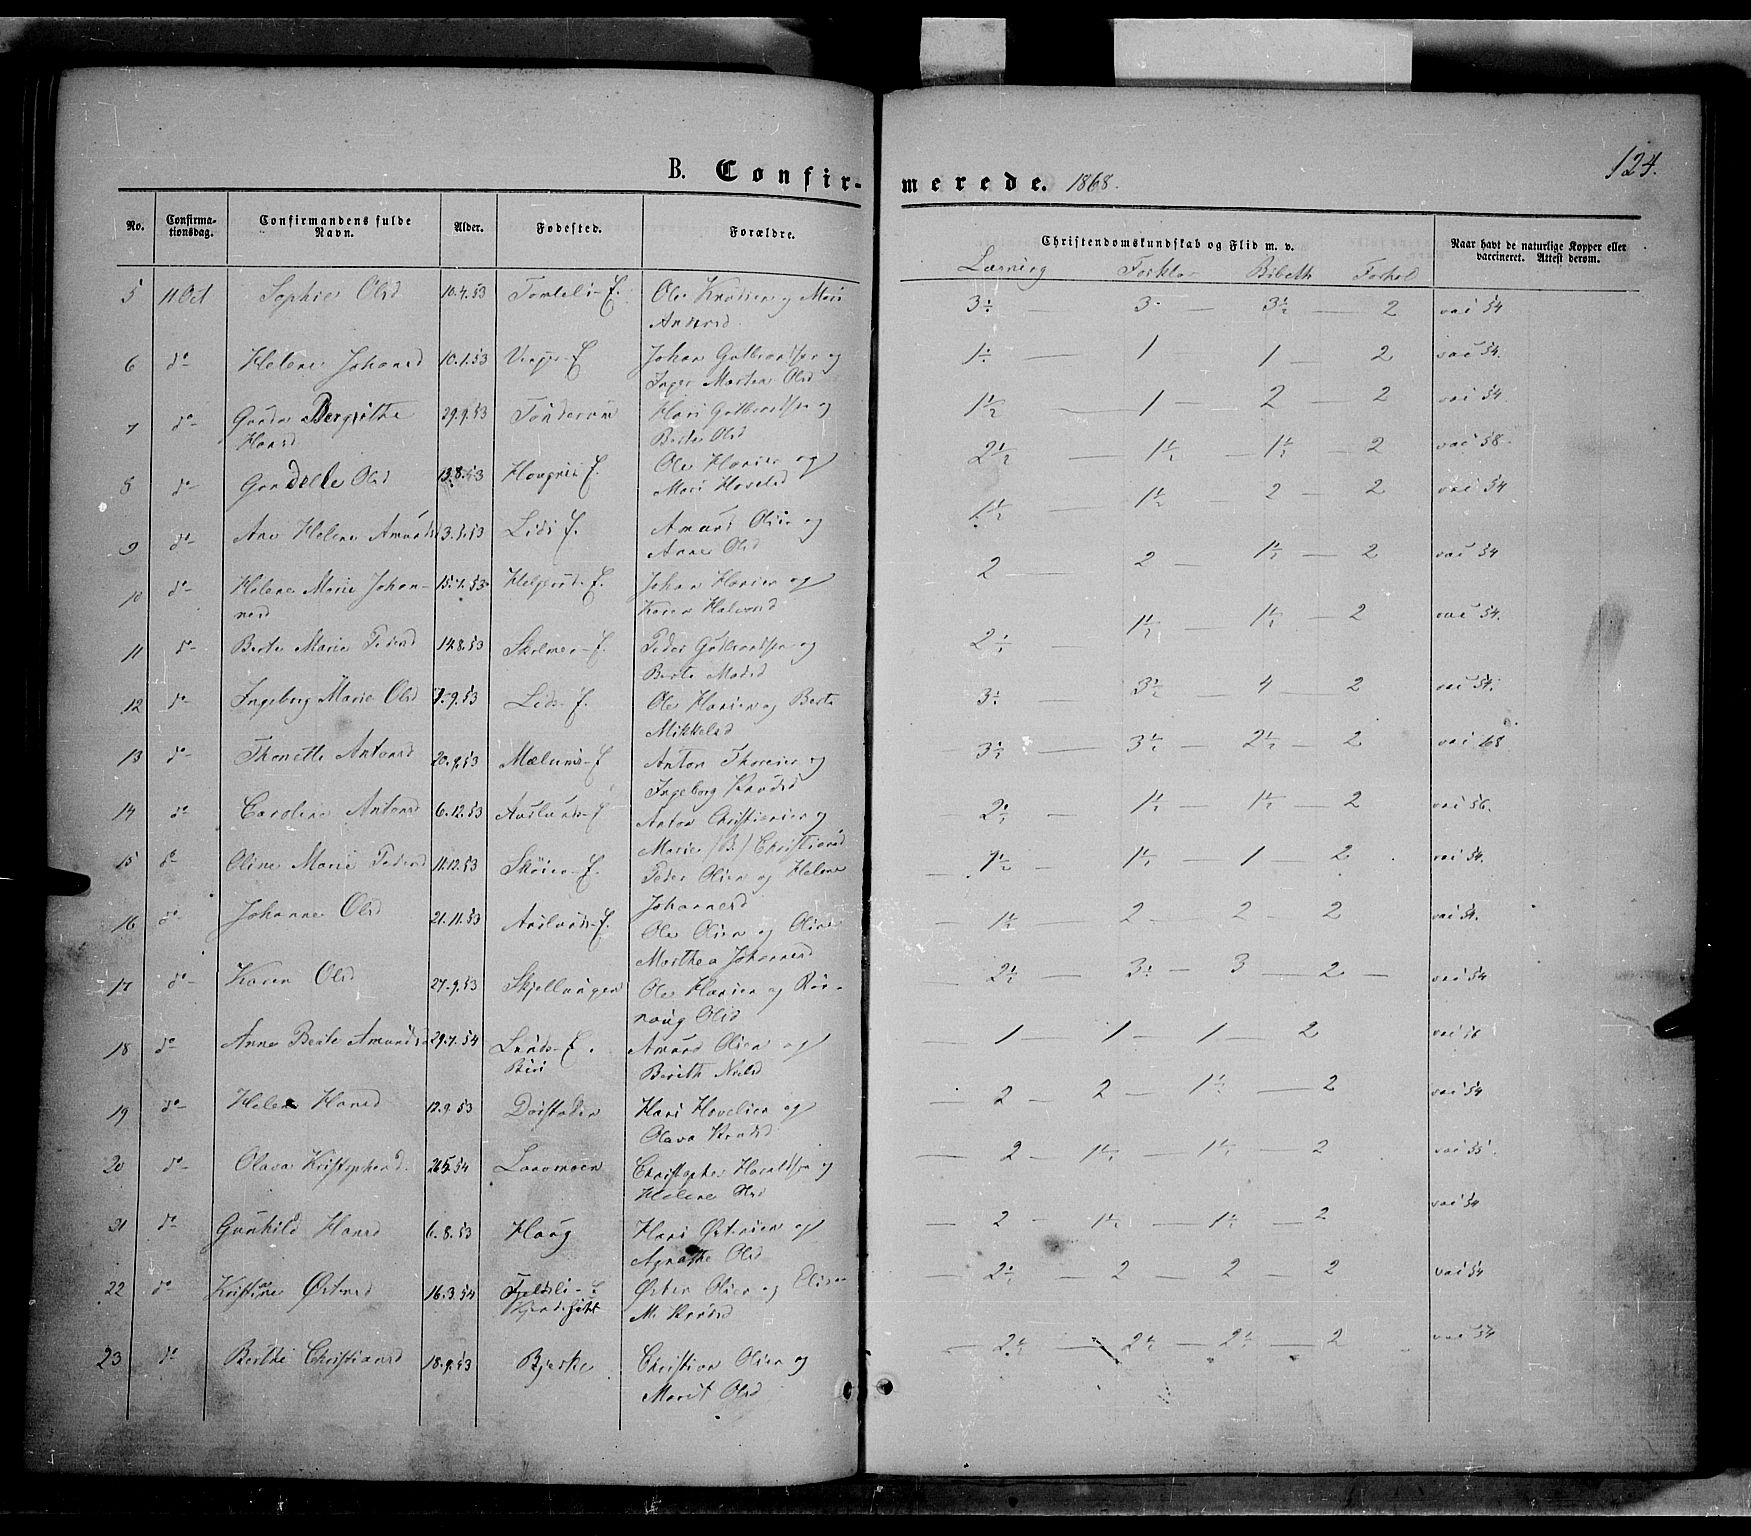 124.
B. Confir-
merede. 1868.
No. Confirma-tionsdag. Confirmandens fulde Navn. Alder. Fødested. Forældre. Christendomskundskab og Flid m. v. Naar havt de naturlige Kopper eller vaccineret. Attest derom.
Læsning Forklar Bibelh Forhol
5 11 Oct Sophie Olsd 10.4.53 Tomteli E. Ole Knudsen og Mari 3½ — 3 — 3½ — 2 vac 54
Andersd
6 do Helene Johansd 10.1.53 E Johan Gulbrandsen og 1½ — 1 1 — 2 vac 54.
Inger Marten Olsd
7 do Bergithe 29.9.53 Hans Gulbrandsen og 1½ — 1 — 2 — 2 vac 54
Hansd Berte Olsd
8 do Olsd 13.8.53 E. Ole Hansen og 2½ — 1½ — 1½ — 2 vac 58
Mari
9 do Ane Helene Amundsd 3.5.53 Lids E. Amund Olsen og 1½ 1½ — 2 — 2 vac 54
Anne Olsd
10 do Helene Marie Johan- 15.7.53 Helgerud E. Johan Hansen og 2 — 2 — 1½ — 2 vac 54
nesd Karen Halvorsd
11 do Berte Marie Pedersd 14.8.53 E. Peder Gulbrandsen og 2½ 1½ — 1½ — 2 vac 54.
Berte Madsd
12 do Ingeborg Marie Olsd 7.9.53 Lids E. Ole Hansen og Berte 3½ 3½ — 4 — 2 vac 54.
Mikkelsd
13 do Thonette Antonsd 20.9.53 Mælums E Anton Thoresen og 3½ — 3½ — 2½ — 2 vac 68
Ingeborg Knudsd
14 do Caroline Antonsd 6.12.53 Aaslunds E Anton Christiansen og — 2½ — 1½ — 1½ — 2 vac 56.
Marie (B) Christiansd
15 do Oline Marie Pedersd 11.12.53 Skøien E. Peder Olsen og Helene — 1½ — 1½ — 1 — 2 vac 54.
Johannesd
16 do Johanne Olsd 21.11.53 Aaslunds E. Ole Olsen og Oline — 1½ 2 — 2 — 2 vac 54.
Marthea Johannesd
17 do Karen Olsd 27.9.53 Skjellungen Ole Hansen og Røn- — 2½ — 3½ — 3 — 2 — vac 54
naug Olsd
18 do Anne Berte Amundsd 29.7.54 Lunds E. Amund Olsen og — 1 1 — 1 — 2 vac 56
Biri Berith Nilsd
19 do Helene Hansd 12.9.53 Døistaden Hans Hovelsen og — 2 2 — 1½ — 2 vac 54
Olava Knudsd
20 do Olava Kristophersd. 26.5.54 Laavmoen Christopher Haraldsen og — 2 — 1½ — 1½ — 2 vac 55
Helene Olsd
21 do Gunhild Hansd 6.8.53 Haug Hans Østensen og — 2 — 1½ — 1½ — 2 vac 54
Agnethe Olsd
22 do Kristine Østensd 16.3.54 Fjeldsli E Østen Olsen og Elisa — 2½ — 2 — 2 — 2 vac 54
M. Knudsd
23 do Berthe Christiansd 18.9.53 Bjerke Christian Olsen og — 2½ — 2½ — 2½ — 2 vac 54
Marit Olsd